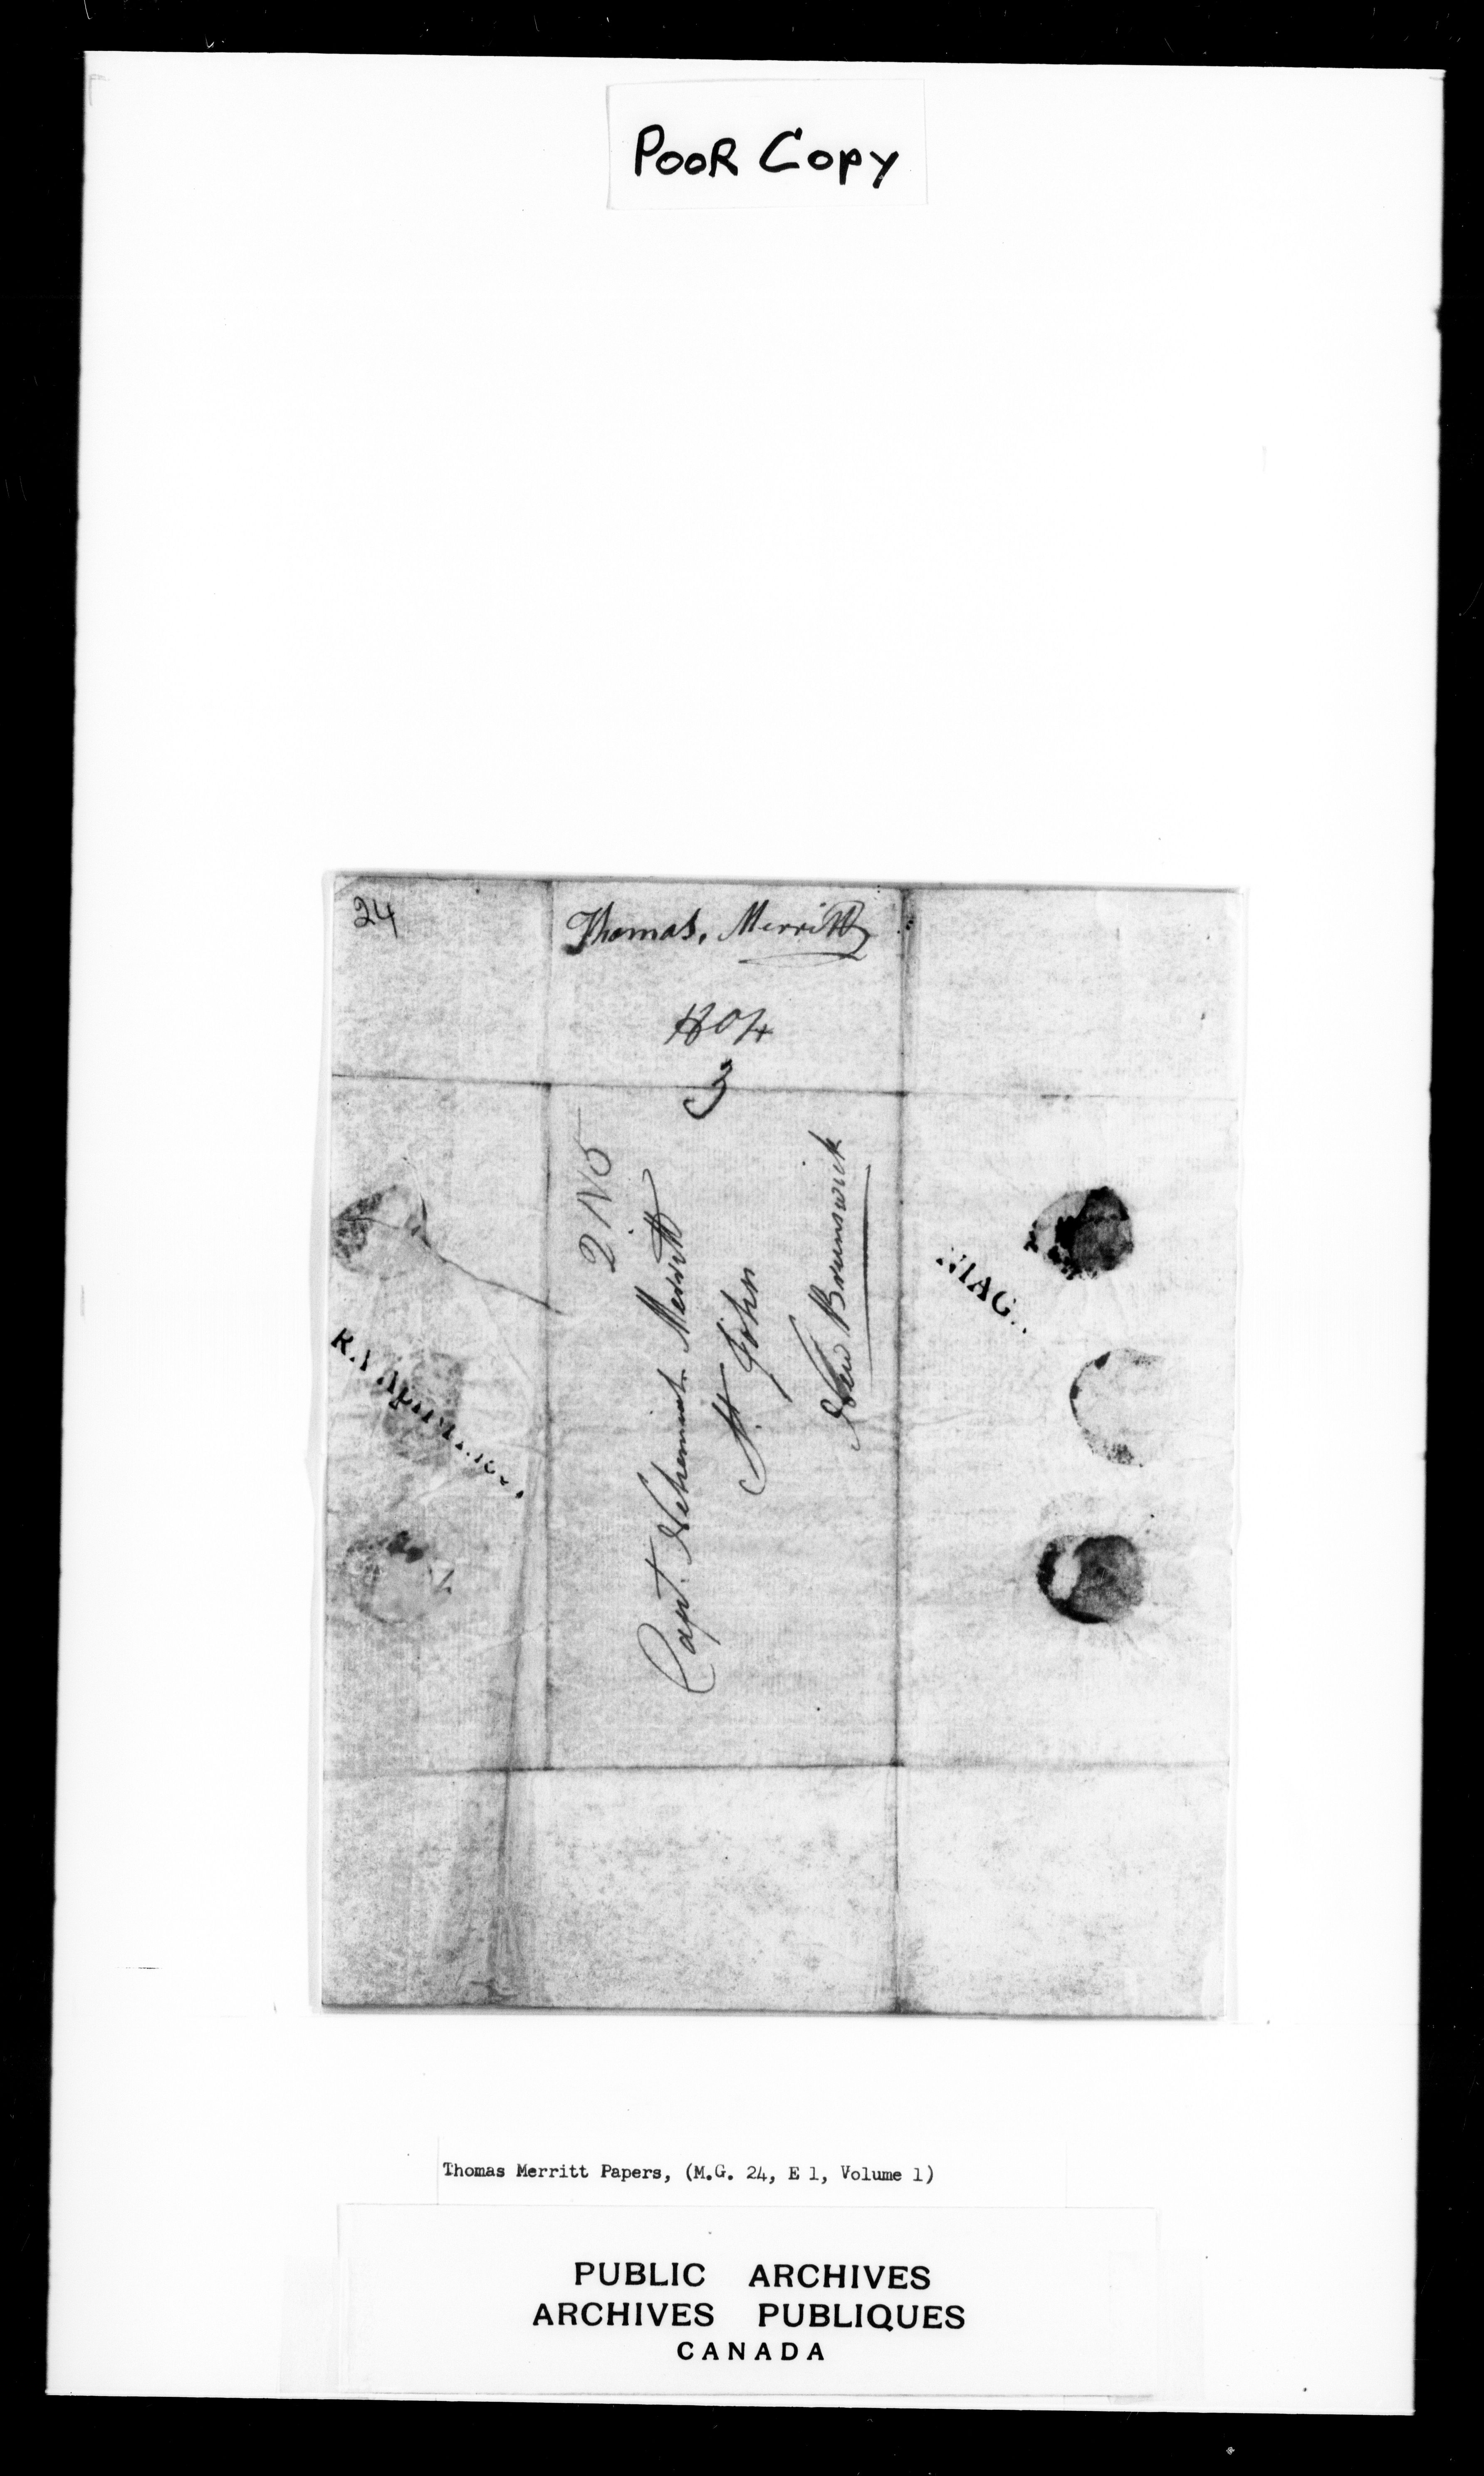 POOR COPY
24
Thomas. Merritt
1804
3
2 N 5
Capt. Nehemiah Merritt
St. John
New Brunswick
NIAG
Thomas Merritt Papers, (M.G. 24, E 1, Volume 1)
PUBLIC ARCHIVES
ARCHIVES PUBLIQUES
CANADA